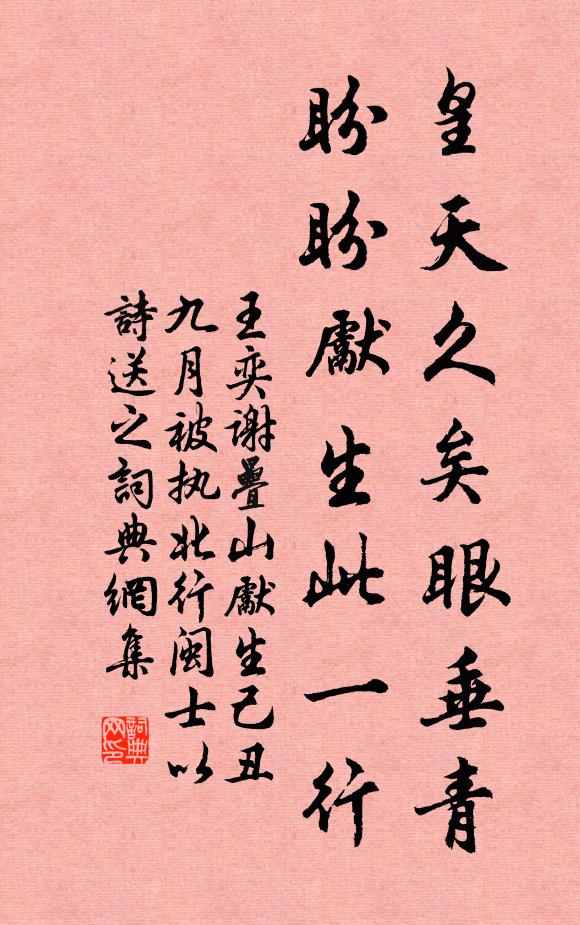 皇天久矣眼垂青
盼盼獻生此一行
王奕谢疊山獻生己丑
九月被执北行闽士以
詩送之詞典網集
詞典网印